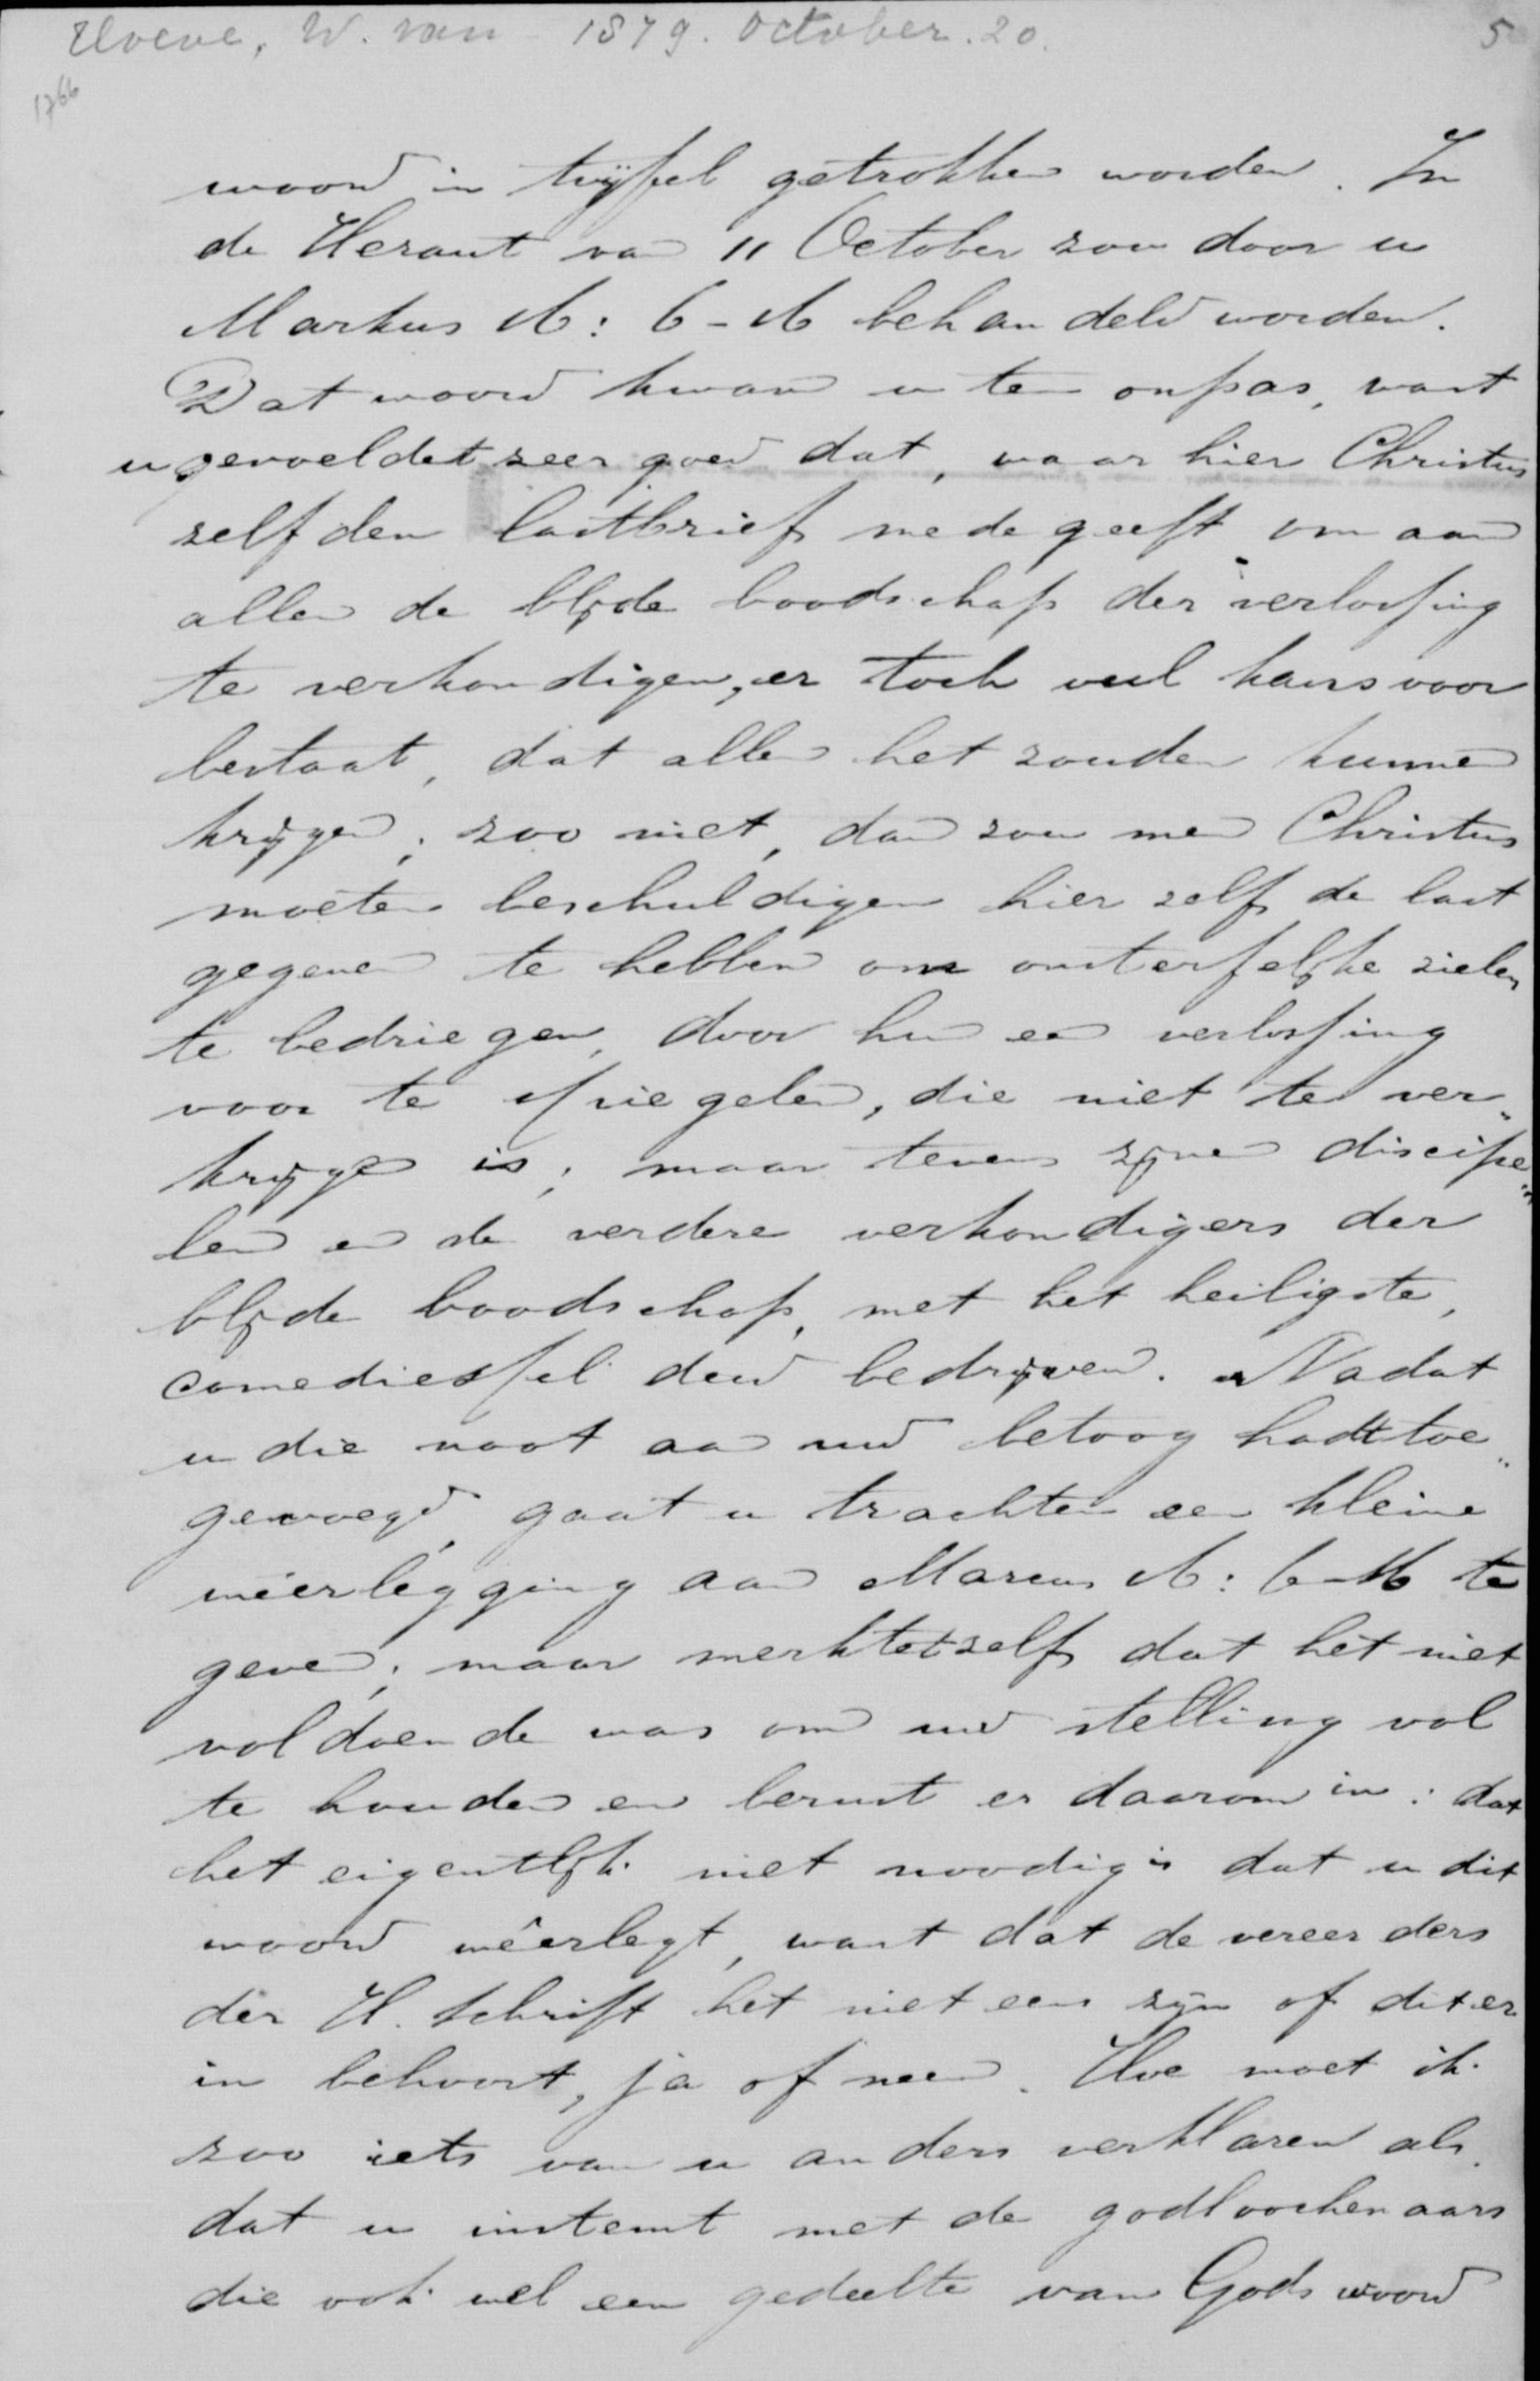 Hoeve, W. van 1879. October. 20.
5
1766
woord in twijfel getrokken worden. In
de Heraut van 11 October zou door u
Markus 16: 6-16 behandeld worden.
Dat woord kwam u ten onpas, want
u gevoeldet zeer goed dat, waar hier Christus
zelf den lastbrief mede geeft om aan
allen de blijde boodschap der verlossing
te verkondigen, er toch veel kans voor
bestaat, dat allen het zouden kunnen
krijgen; zoo niet, dan zou men Christus
moeten beschuldigen hier zelf de last
gegeven te hebben om onsterfelijke zielen
te bedriegen, door hun een verlossing
voor te spiegelen, die niet te ver„
krijgen is; maar tevens zijne discipe„
len en de verdere verkondigers der
blijde boodschap, met het heiligste,
comediespel deed bedrijven. Nadat
u die noot aan uw betoog hadt toe„
gevoegd, gaat u trachten een kleine
wêerlegging aan Marcus 16: 6-16 te
geven; maar merktet zelf dat het niet
voldoende was om uw stelling vol
te houden en berust er daarom in: dat
het eigentlijk niet noodig is dat u dit
woord wêerlegt, want dat de vereerders
der H. Schrift het niet eens zijn of dit er
in behoort, ja of neen. Hoe moet ik
zoo iets van u anders verklaren als
dat u instemt met de godloochenaars
die ook wel een gedeelte van Gods woord